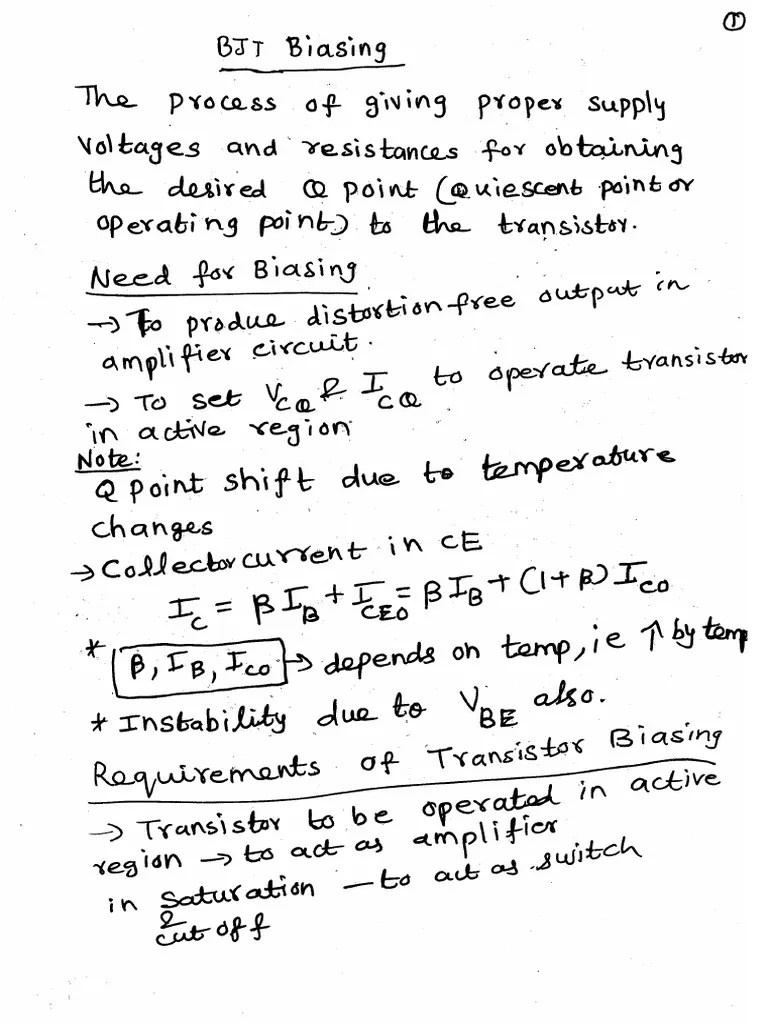 ①
BJT Biasing
The process of giving proper supply
voltages and resistances for obtaining
the desired Q point (Quiescent point or
operating point) to the transistor.
Need for Biasing
→ To produe distortion free output in
amplifier circuit.
→ To set V_CQ & I_CQ to operate transistor
in active region
Note:
Q point shift due to temperature
changes
→ Collector current in CE
I_C = βI_B + I_CEO = βI_B + (1+β) I_CO
* β, I_B, I_CO → depends on temp, ie ↑ by temp
* Instability due to V_BE also.
Requirements of Transistor Biasing
→ Transistor to be operated in active
region → to act as amplifier
in saturation — to act as switch
&
cut off